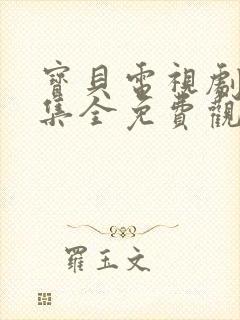 寶貝電視劇
集全免費觀
羅玉文